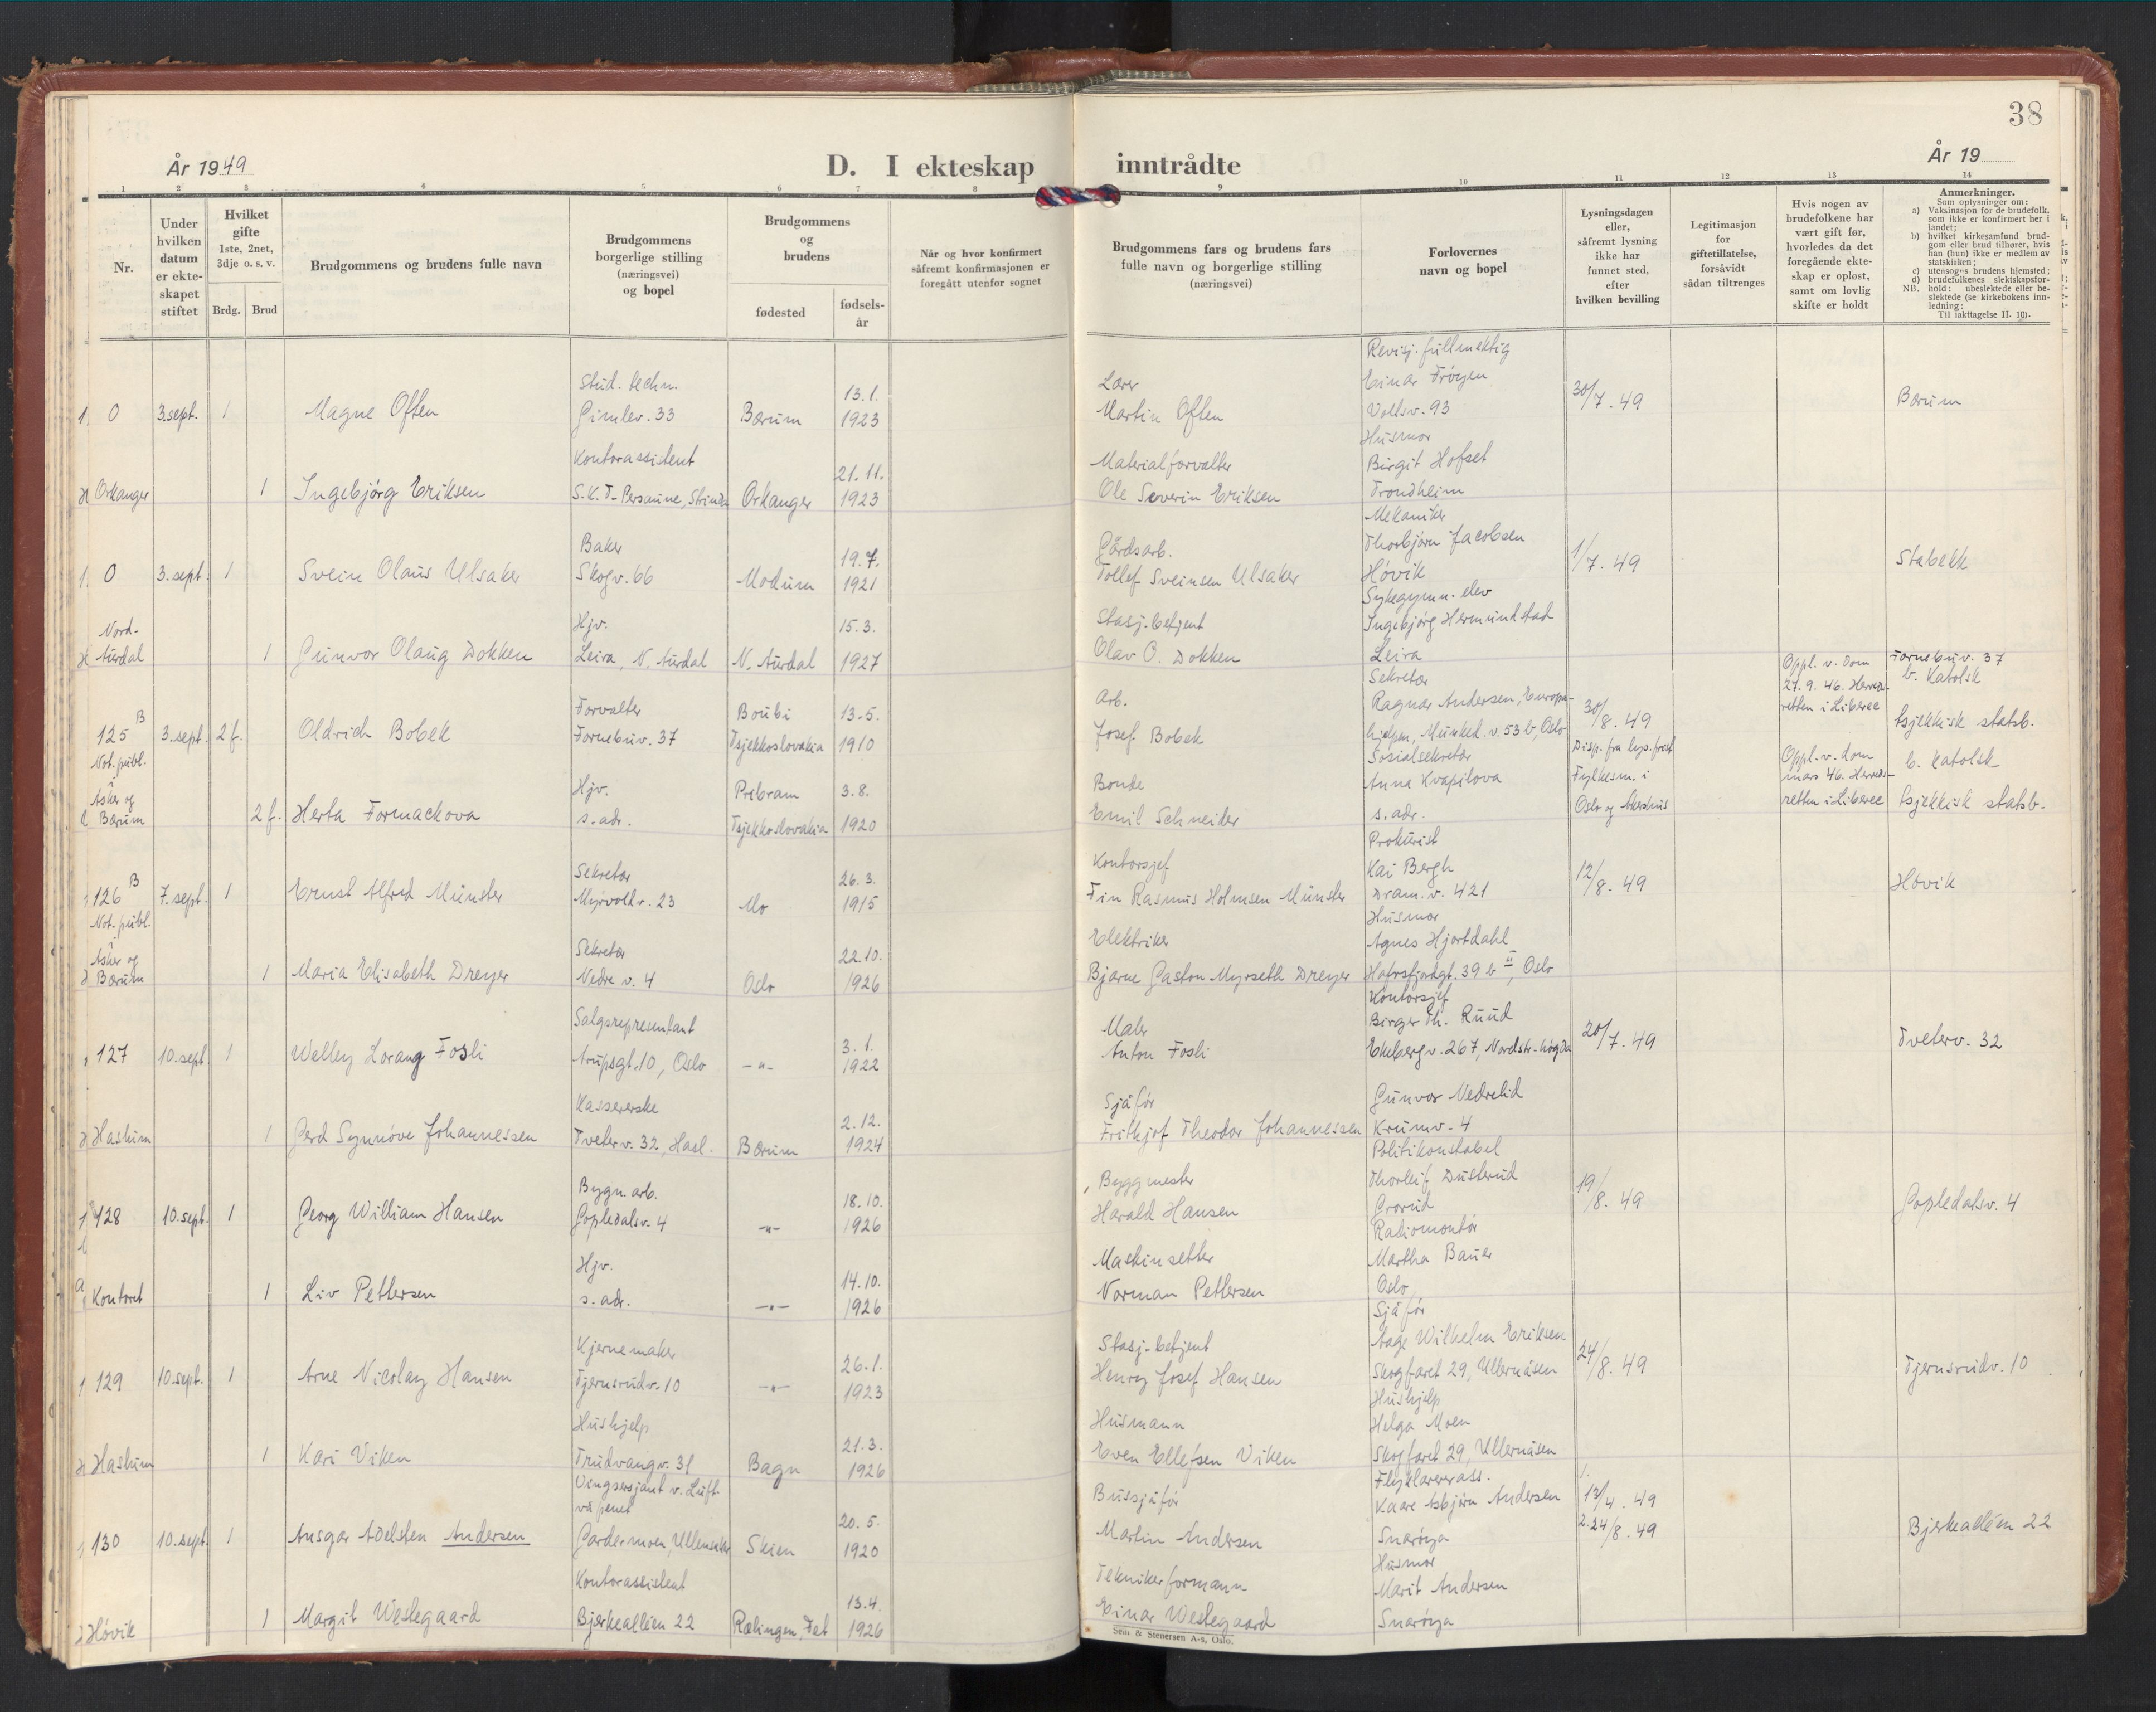 38
År 1949
D. I ekteskap inntrådte
År 19
1 2 3 4 5 6 7 8 9 10 11 12 13 14
Nr.
Under hvilken datum er ekteskapet stiftet
Hvilket gifte
1ste, 2net, 3dje o. s. v.
Brdg.
Brud
Brudgommens og brudens fulle navn
Brudgommens borgerlige stilling (næringsvei) og bopel
Brudgommens og brudens
fødested
fødsels-år
Når og hvor konfirmert såfremt konfirmasjonen er foregått utenfor sognet
Brudgommens fars og brudens fars fulle navn og borgerlige stilling (næringsvei)
Forlovernes navn og bopel
Lysningsdagen eller, såfremt lysning ikke har funnet sted, efter hvilken bevilling
Legitimasjon for giftetillatelse, forsåvidt sådan tiltrenges
Hvis nogen av brudefolkene har vært gift før, hvorledes da det foregående ekteskap er opløst, samt om lovlig skifte er holdt
Anmerkninger.
Som oplysninger om:
a) Vaksinasjon for de brudefolk, som ikke er konfirmert her i landet;
b) hvilket kirkesamfund brudgom eller brud tilhører, hvis han (hun) ikke er medlem av statskirken;
c) utensogns brudens hjemsted;
d) brudefolkenes slektskapsforhold: ubeslektede eller beslektede (se kirkebokens innledning:
NB.
Til iakttagelse II. 10).
0 3. sept. 1 Magne Often
Stud. techn.
Gimlev. 33
Bærum
13.1.
1923
Lærer
Martin Often
Revisj. fullmektig
Einar Frøyen
Vollsv. 93
30/7. 49
Bærum
Orkanger 1 Ingebjørg Eriksen
Kontorassistent
S.K.T- Persaune, Strinda
Orkanger
21.11.
1923
Materialforvalter
Ole Severin Eriksen
Husmor
Birgit Hofset
Trondheim
0 3. sept. 1 Svein Olaus Ulsaker
Baker
Skogv. 66
Modum
19.7.
1921
Gårdsarb.
Tollef Sveinsen Ulsaker
Mekaniker
Thorbjørn Jacobsen
Høvik
1/7. 49
Stabekk
Nord-
Aurdal 1 Gunvor Olaug Dokken
Hjv.
Leira, N. Aurdal
N. Aurdal
15.3.
1927
Stasj. betjent
Olav O. Dokken
Sykegymn. elev
Ingebjørg Hermundstad
Leira
125 B
Not. publ.
3. sept. 2 f. Oldrich Bobek
Forvalter
Fornebuv. 37
Boubi
Tsjekkoslovakia
13.5.
1910
Arb.
Josef Bobek
Sekretær
Ragnar Andersen, Europa-
hjelpen, Munked. v. 53 b, Oslo
30/8. 49
Disp. fra lys. frist
Fylkesm. i
Oslo og Akershus
Oppl. v. dom
27.9.46. Herreds-
retten i Liberec
Fornebuv. 37
b. Katolsk
tsjekkisk statsb.
Asker og
Bærum 2 f. Herta Formackova
Hjv.
s. adr.
Pribram
Tsjekkoslovakia
3.8.
1920
Bonde
Emil Schneider
Sosialsekretær
Anna Kvapilova
s. adr.
Oppl. v. dom
mars 46. Herreds-
retten i Liberec
b. katolsk
tsjekkisk statsb.
126 B
Not. publ.
7. sept. 1 Ernst Alfred Münster
Sekretær
Myrvoldv. 23
Mo
26.3.
1915
Kontorsjef
Fin Rasmus Holmsen Münster
Prokurist
Kai Bergh
Dram. v. 421
12/8. 49
Høvik
Asker og
Bærum 1 Maria Elisabeth Dreyer
Sekretær
Nedre v. 4
Oslo
22.10.
1926
Elektriker
Bjarne Gaston Myrseth Dreyer
Husmor
Agnes Hjortdahl
Hafrsfjordgt. 39 b II, Oslo
127 10. sept. 1 Welley Lorang Fosli
Salgsrepresentant
Arupsgt. 10, Oslo
-"-
3.1.
1922
Maler
Anton Fosli
Kontorsjef
Birger Th. Ruud
Ekebergv. 267, Nordstr. høgda
20/7. 49
Tveterv. 32
Haslum 1 Gerd Synnøve Johannessen
Kassererske
Tveterv. 32, Hasl.
Bærum
2.12.
1924
Sjåfør
Frithjof Theodor Johannessen
Gunvor Nedrelid
Krumv. 4
128 10. sept. 1 Georg William Hansen
Bygn. arb.
Gopledalsv. 4
-"-
18.10.
1926
Byggmester
Harald Hansen
Politikonstabel
Thorleif Dusterud
Grorud
19/8. 49
Gopledalsv. 4
Kontoret 1 Liv Pettersen
Hjv.
s. adr.
-"-
14.10.
1926
Maskinsetter
Norman Pettersen
Radiomontør
Martha Bauer
Oslo
129 10. sept. 1 Arne Nicolay Hansen
Kjernemaker
Tjernsrudv. 10
-"-
26.1.
1923
Stasj. betjent
Henry Josef Hansen
Sjåfør
Aage Wilhelm Eriksen
Skogfaret 29, Ullernåsen
24/8. 49
Tjernsrudv. 10
Haslum 1 Kari Viken
Hushjelp
Trudvangv. 31
Bagn
21.3.
1926
Husmann
Even Ellefsen Viken
Hushjelp
Helga Moen
Skogfaret 29, Ullernåsen
130 10. sept. 1 Ansgar Adelsten Andersen
Vingsersjant v. Luft-
våpenet
Gardermoen, Ullensaker
Skien
20.5.
1920
Bussjåfør
Martin Andersen
Flyklarererass.
Kaare Asbjørn Andersen
Snarøya
1. 13/4. 49
2. 24/8. 49
Bjerkealléen 22
Høvik 1 Margit Westegaard
Kontorassistent
Bjerkealléen 22
Rælingen, Fet
13.4.
1926
Teknikerformann
Einar Westegaard
Husmor
Marit Andersen
Snarøya
Sem & Stenersen A-s, Oslo.